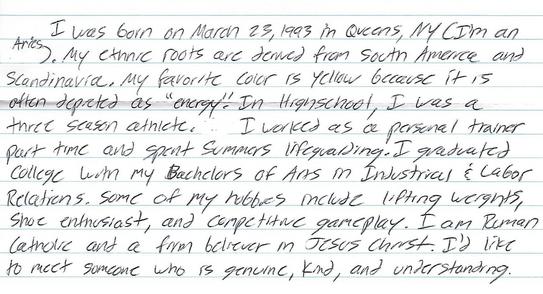 I was born on March 23, 1993 in Queens, NY (I'm an
Aries). My ethnic roots are derived from South America and
Scandinavia. My favorite color is yellow because it is
often depicted as "energy". In Highschool, I was a
three season athlete. I worked as a personal trainer
part time and spent summers lifeguarding. I graduated
College with my Bachelors of Arts in Industrial & Labor
Relations. Some of my hobbies include lifting weights,
shoe enthusiast, and competitive gameplay. I am Roman
Catholic and a firm believer in Jesus Christ. I'd like
to meet someone who is genuine, kind, and understanding.